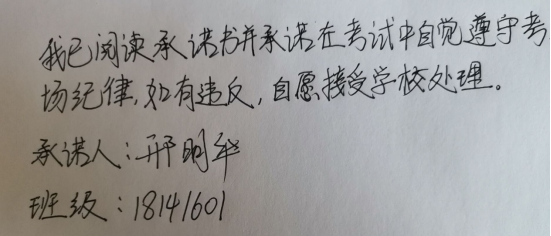 我已阅读承诺书并承诺在考试中自觉遵守考
场纪律,如有违反,自愿接受学校处理。
承诺人:邢明华
班级:18141601